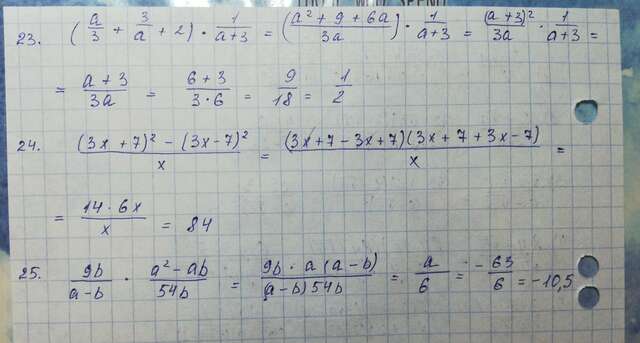 23. (a/3 + 3/a + 2) · 1/(a+3) = ((a² + 9 + 6a)/3a) · 1/(a+3) = (a+3)²/3a · 1/(a+3) =
= (a+3)/3a = (6+3)/(3·6) = 9/18 = 1/2
24. ((3x+7)² − (3x−7)²)/x = ((3x+7−3x+7)(3x+7+3x−7))/x =
= (14·6x)/x = 84
25. 9b/(a−b) · (a²−ab)/54b = (9b · a(a−b))/((a−b)54b) = a/6 = −63/6 = −10,5